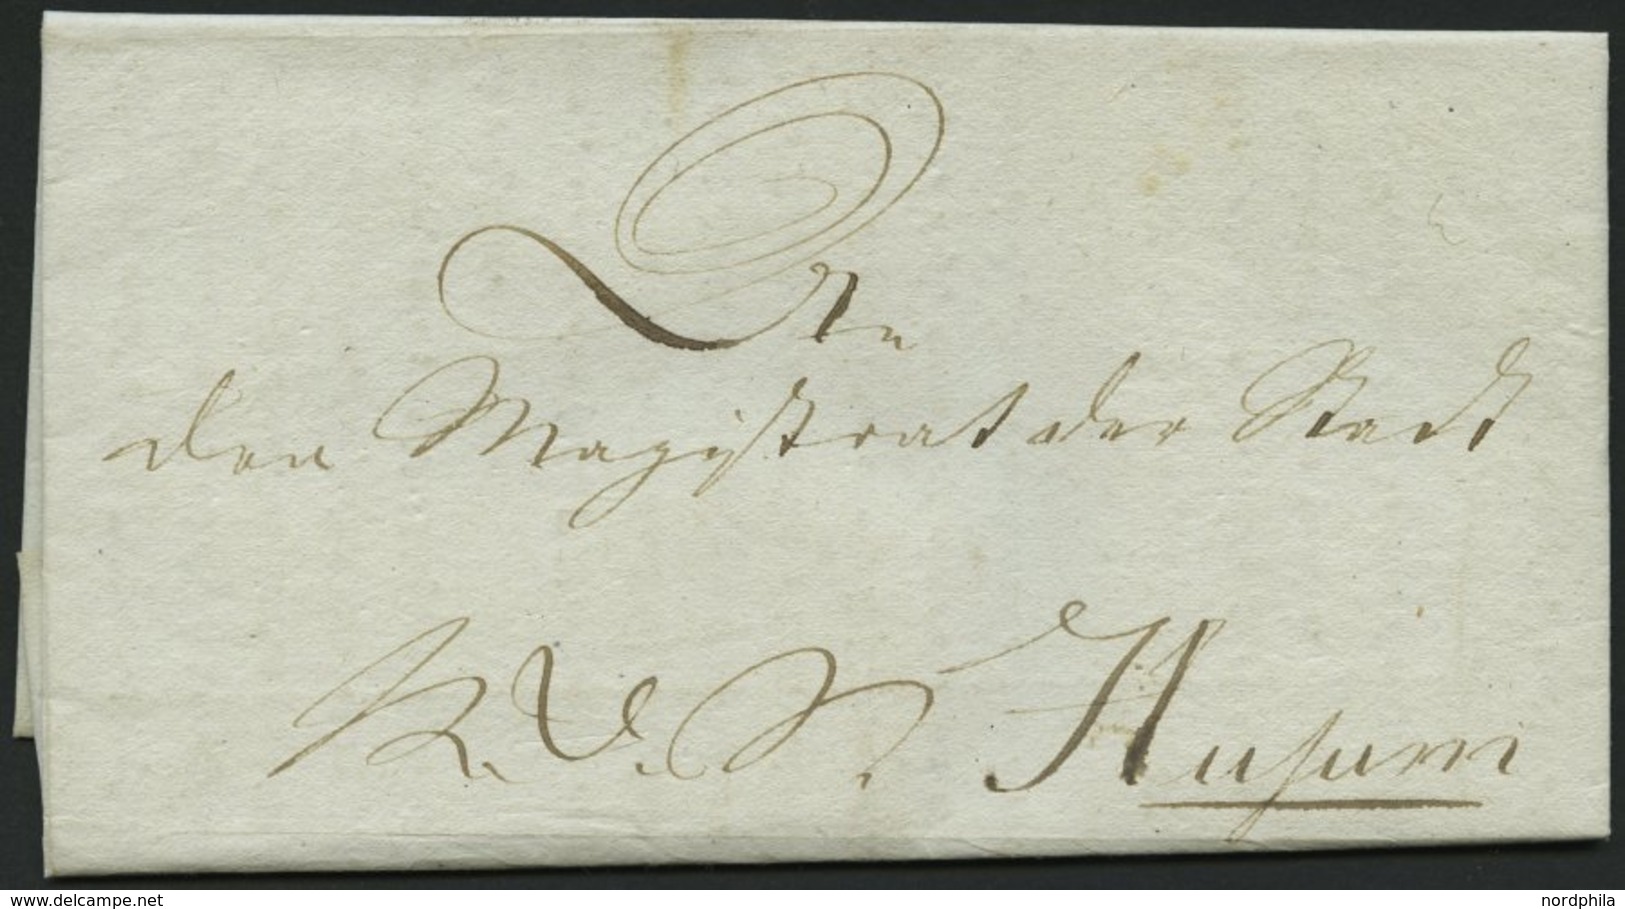 An
den Magistrat der Stadt
K. D. S. Husum
www.delcampe.net
nordphila